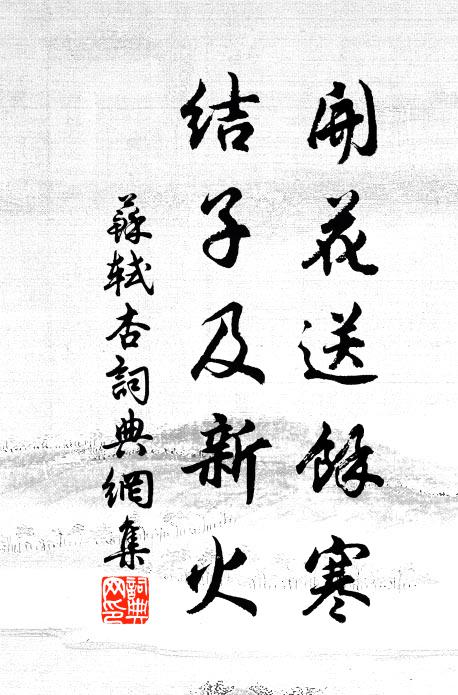 開花送餘寒
結子及新火
蘇軾杏詞典網集
詞典
網印